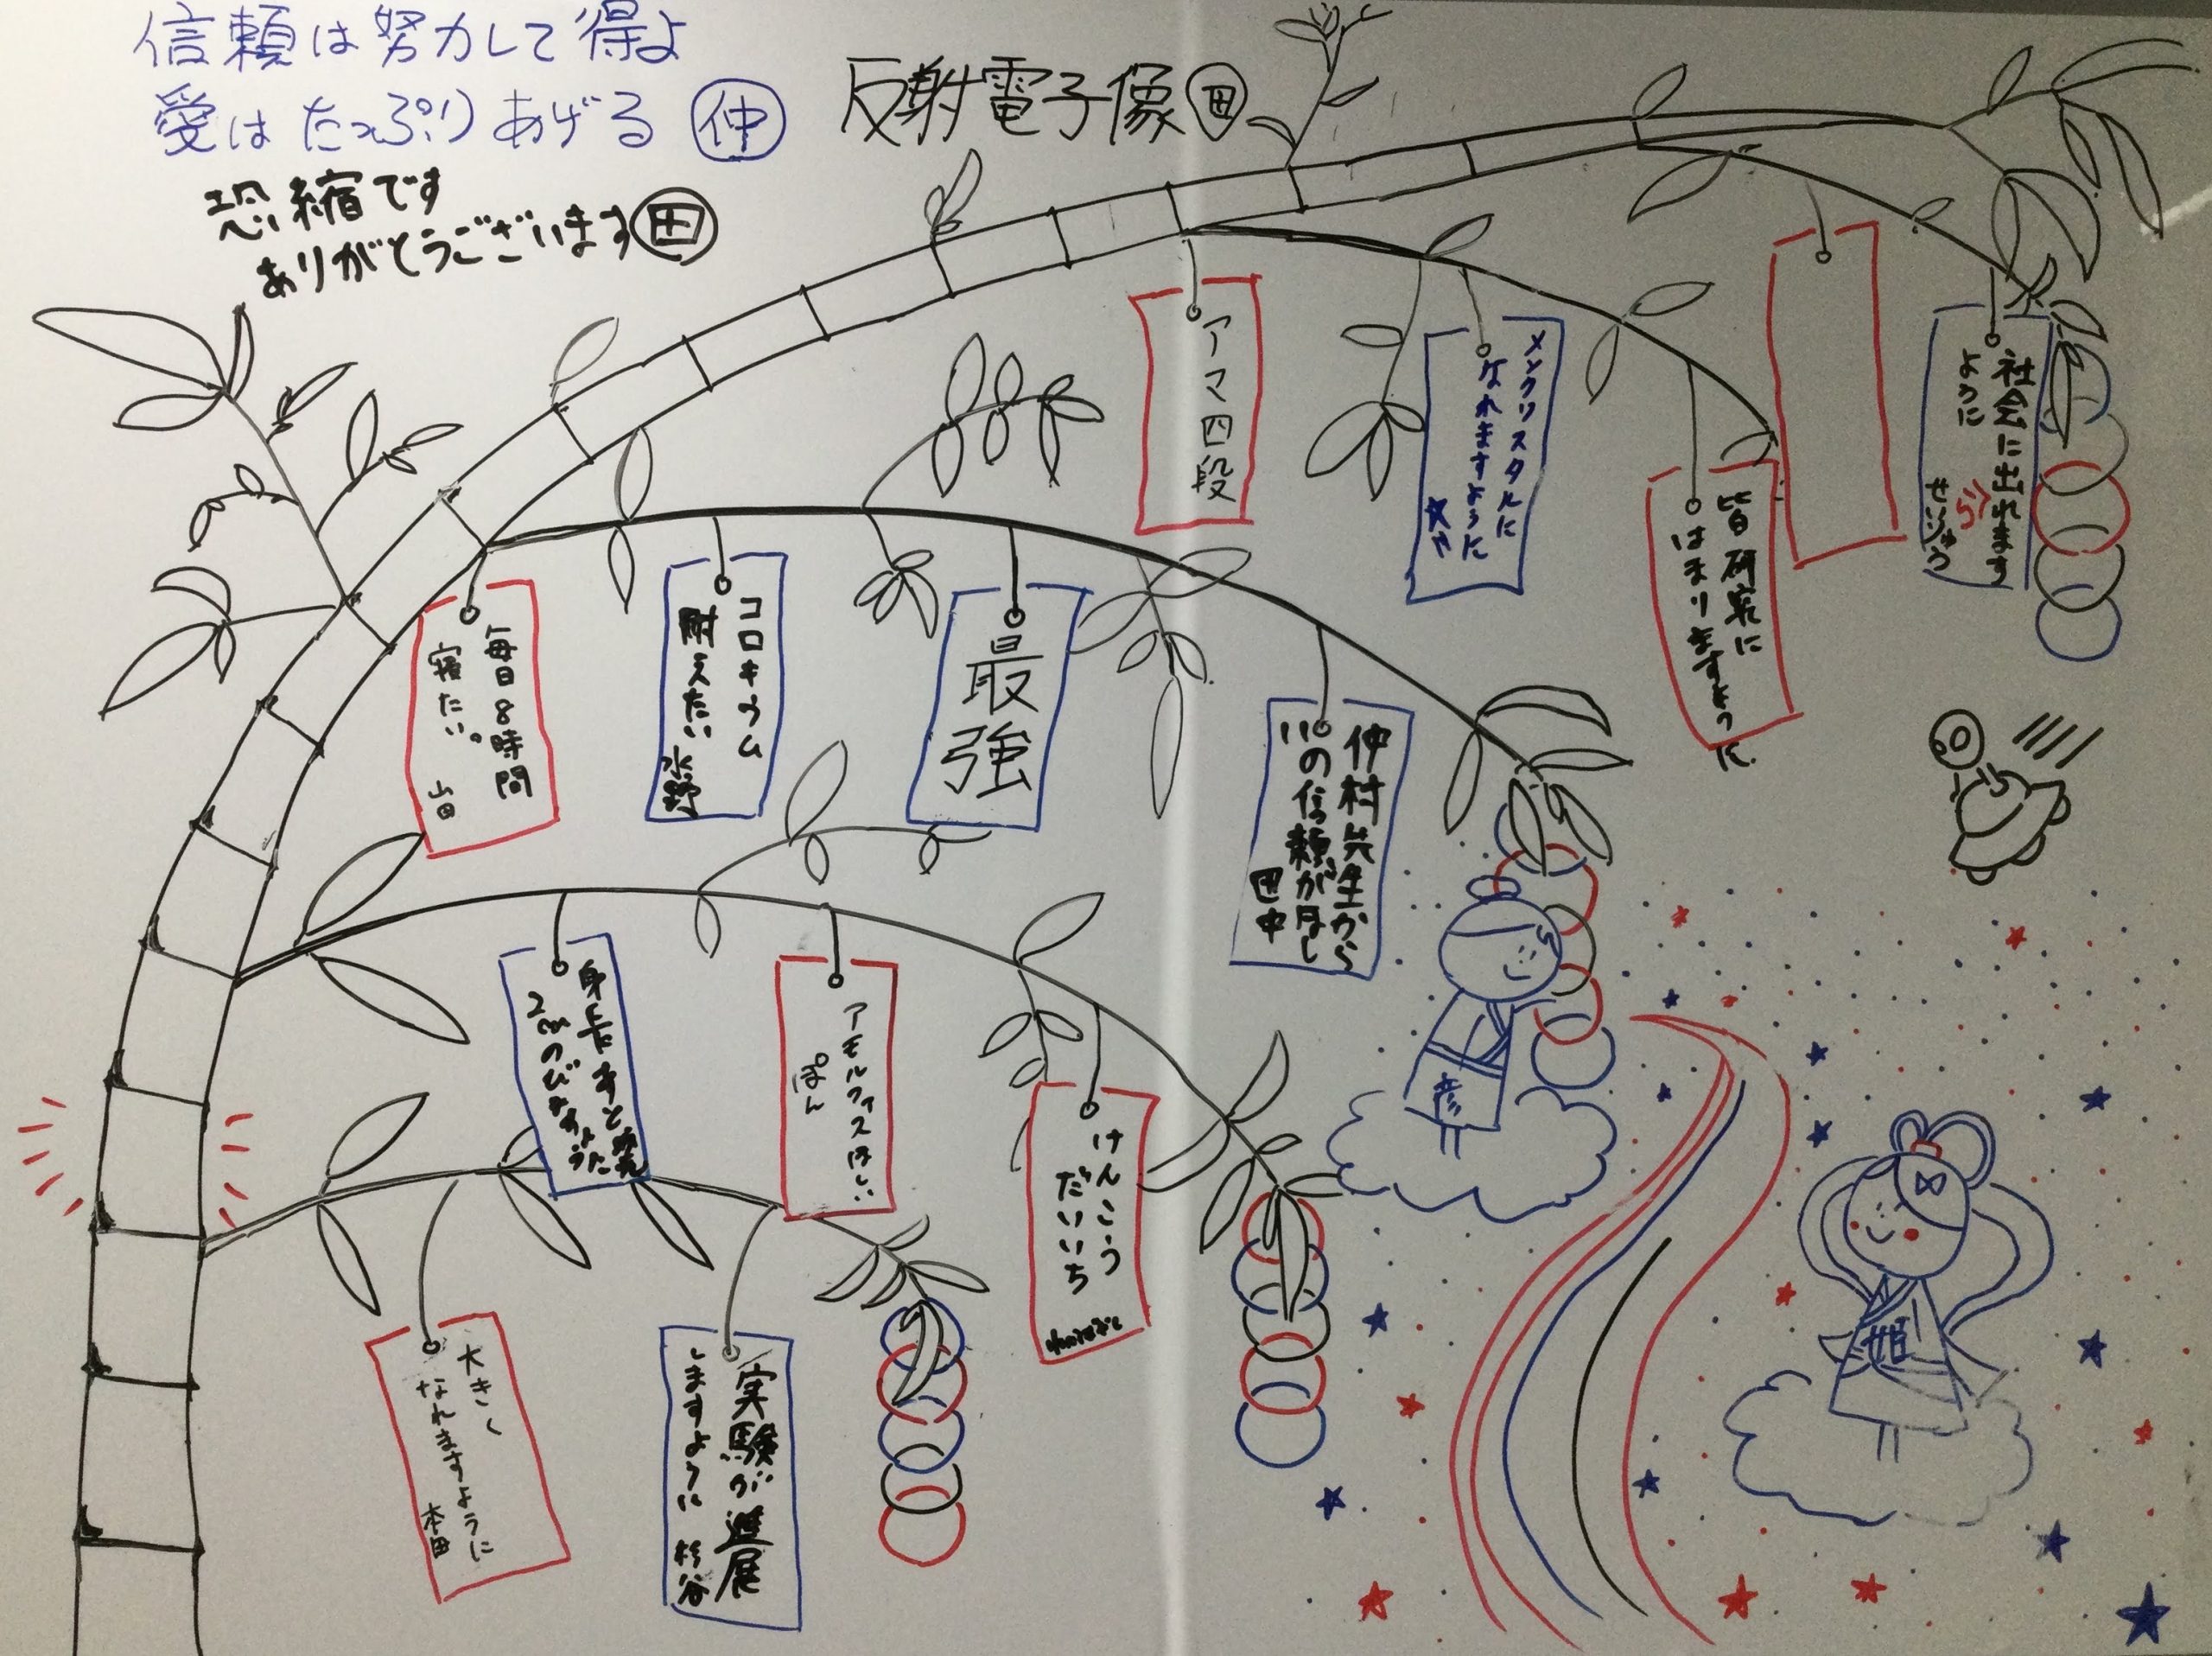 信頼は努力して得よ
愛はたっぷりあげる 仲
恐縮です
ありがとうございます 田
反射電子像 田
社会に出れます
ように
せいじゅう
ら
皆研究に
はまりますように
メンクリスタルに
なれますように
アマ四段
仲村先生から
の信頼がほしい
田中
最強
コロキウム
耐えたい
水野
毎日8時間
寝たい。
山田
けんこう
だいいち
アモルファスほしい
ぽん
身長すと
2cmのびますように
実験が進展
しますように
杉谷
大きく
なれますように
本田
彦
姫